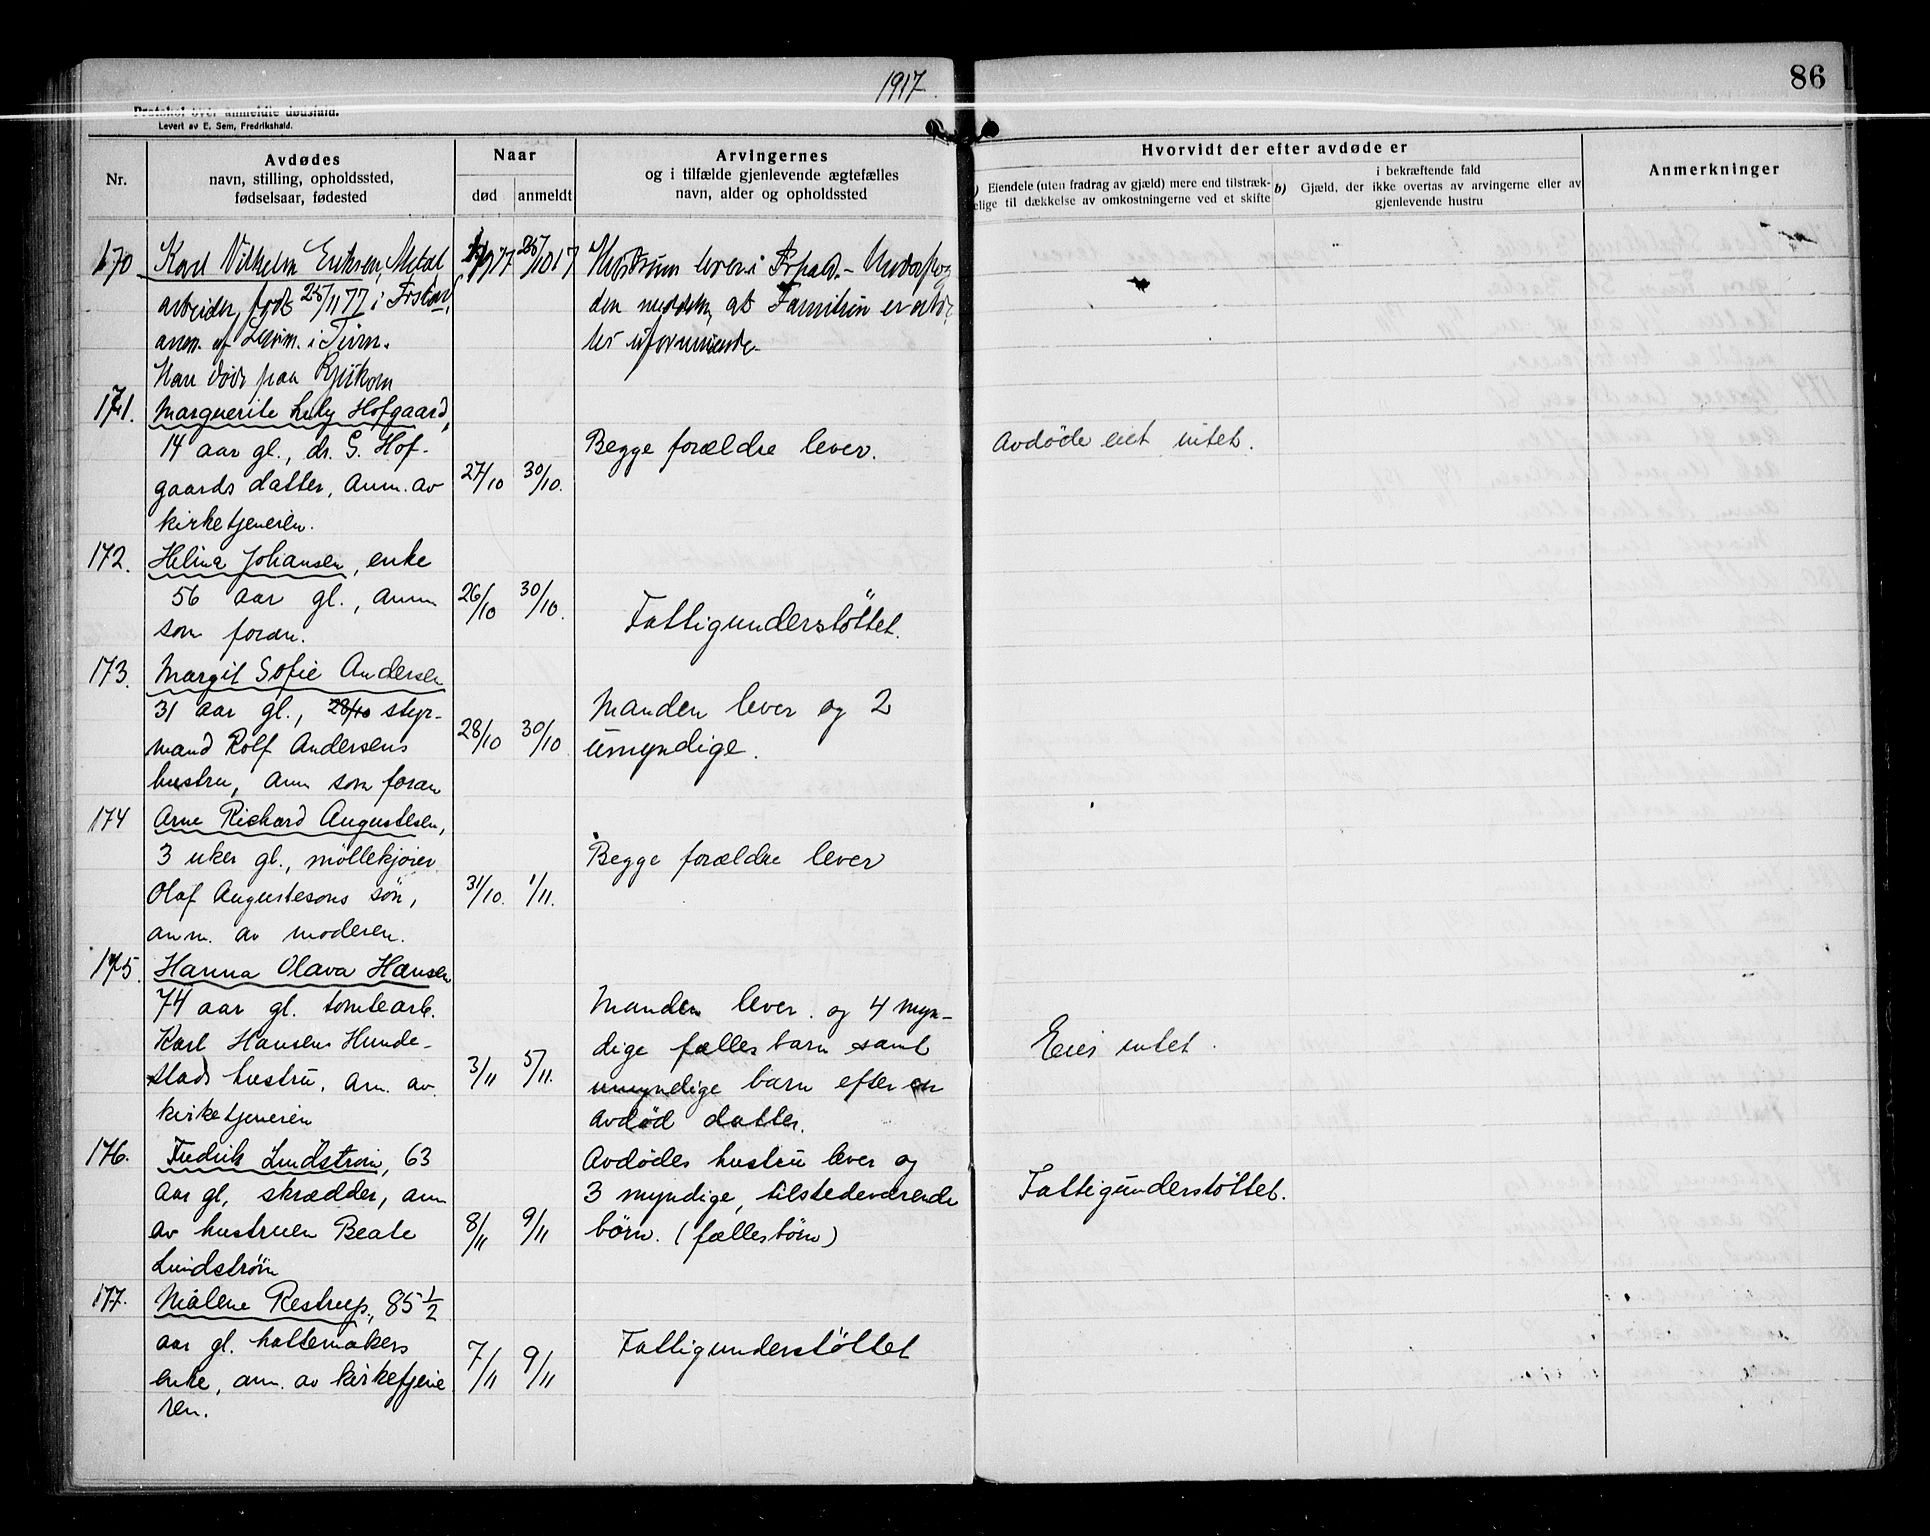 1917.
86
Protokol over anmeldte dødsfald.
Levert av E. Sem, Fredrikshald.
Nr.
Avdødes
navn, stilling, opholdssted,
fødselsaar, fødested
Naar
død
anmeldt
Arvingernes
og i tilfælde gjenlevende ægtefælles
navn, alder og opholdssted
Hvorvidt der efter avdøde er
Eiendele (uten fradrag av gjæld) mere end tilstræk-
elige til dækkelse av omkostningerne ved et skifte
i bekræftende fald
b) Gjæld, der ikke overtas av arvingerne eller av
gjenlevende hustru
Anmerkninger
170 Karl Vilhelm Eriksen, Metal
arbeider, født 25/11 77 i
anm. af i
Han døde paa Rjukan
25/10 17
lever i
den at Familien er
uformuende
171. Marguerite Luly Hofgaard,
14 aar gl., dr. G. Hof-
gaards datter, Anm. av
kirketjeneren.
27/10 30/10.
Begge forældre lever.
Avdøde eiet intet.
172. Helina Johansen, enke
56 aar gl., anm
som foran.
26/10 30/10.
Fattigunderstöttet.
173. Margit Sofie Andersen
31 aar gl., 28/10 styr-
mand Rolf Andersens
hustru, anm som foran
28/10 30/10
Manden lever og 2
umyndige.
174 Arne Richard Augustesen,
3 uker gl., möllekjörer
Olaf Augustesons sön,
anm. av moderen.
31/10. 1/11.
Begge forældre lever
175. Hanna Olava Hansen
74 aar gl. tomtearb.
Karl Hansens Hunde-
stads hustru. Anm. av
kirketjeneren
3/11 5/11.
Manden lever og 4 myn-
dige fælles barn samt
umyndige barn efter en
avdød datter.
Eier intet.
176. Fredrik Lindstrøm, 63
aar gl, skrædder, anm
av hustruen Beate
Lindstrøm
8/11 9/11
Avdødes hustru lever og
3 myndige, tilstedeværende
børn. (fællesbørn)
Fattigunderstöttet.
177. Malene Restrup, 85 1/2
aar gl. hattemakers
enke, anm. av kirketjene
ren.
7/11 9/11
Fattigunderstöttet